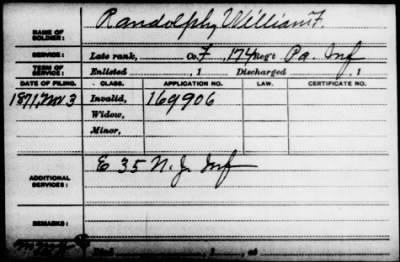 NAME OF SOLDIER: Randolph, William F.
SERVICE: Late rank, Co. F, 174 Reg't Pa. Inf
TERM OF SERVICE: Enlisted , 1 Discharged , 1
DATE OF FILING. CLASS. APPLICATION NO. LAW. CERTIFICATE NO.
1871, Nov 3 Invalid, 169906
Widow,
Minor,
ADDITIONAL SERVICES: E 35 N. J. Inf
REMARKS:
Died , 1 , at